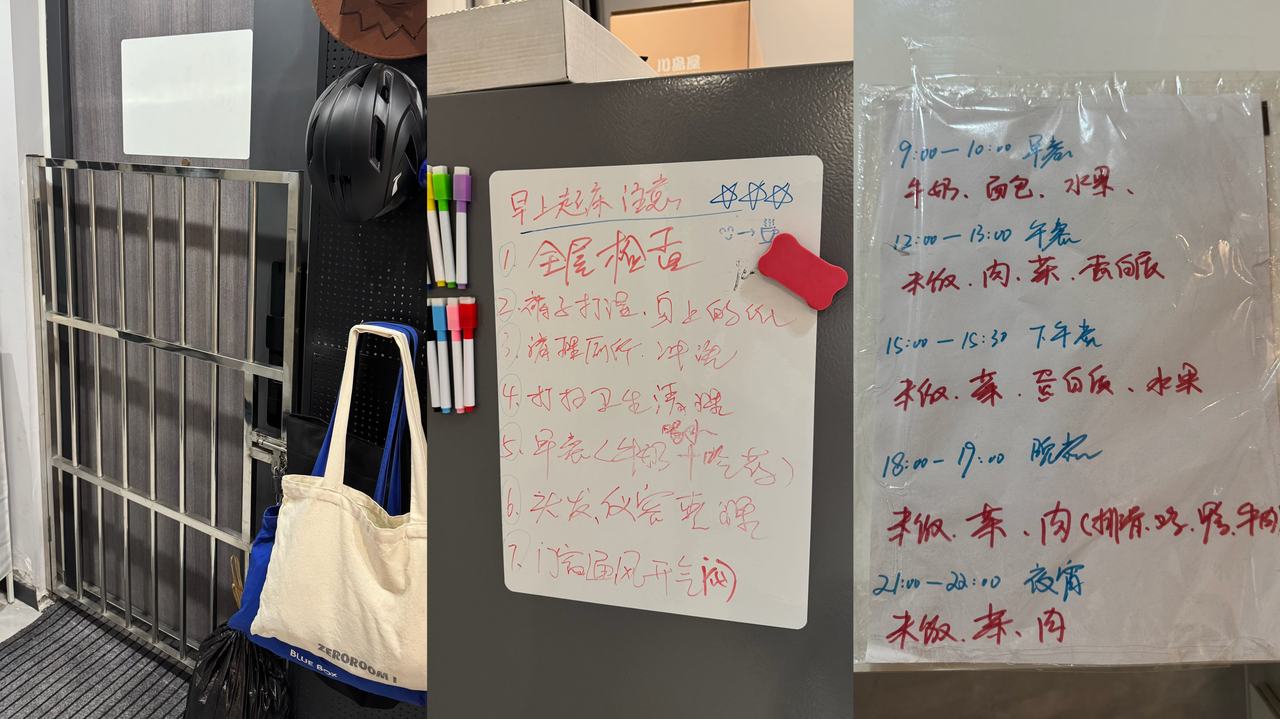 ZEROROOM !
BLUE BOX
川島屋
早上起床注意
① 全屋检查
② 裤子打湿、身上的
③ 清理厕所、冲洗
④ 打扫卫生清理
喝水
⑤ 早餐(牛奶+吃药)
⑥ 头发、仪容整理
7. 门窗通风开气阀)
9:00—10:00 早餐
牛奶、面包、水果、
12:00—13:00 午餐
米饭、肉、菜、蛋白质
15:00—15:30 下午餐
米饭、菜、蛋白质、水果
18:00—19:00 晚餐
米饭、菜、肉(排骨、鸡、鸭、牛肉
21:00—22:00 夜宵
米饭、菜、肉